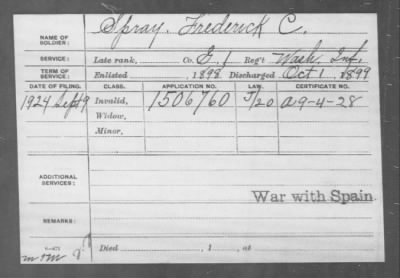 NAME OF SOLDIER: Spray, Frederick C.
SERVICE: Late rank, Co. G, 1 Reg't Wash. Inf.
TERM OF SERVICE: Enlisted , 1898 Discharged Oct 1, 1899
DATE OF FILING. CLASS. APPLICATION NO. LAW. CERTIFICATE NO.
1924 Sept 9 Invalid, 1506760 J/20 a 9-4-28
Widow,
Minor,
ADDITIONAL SERVICES:
War with Spain.
REMARKS:
Died , 1 , at